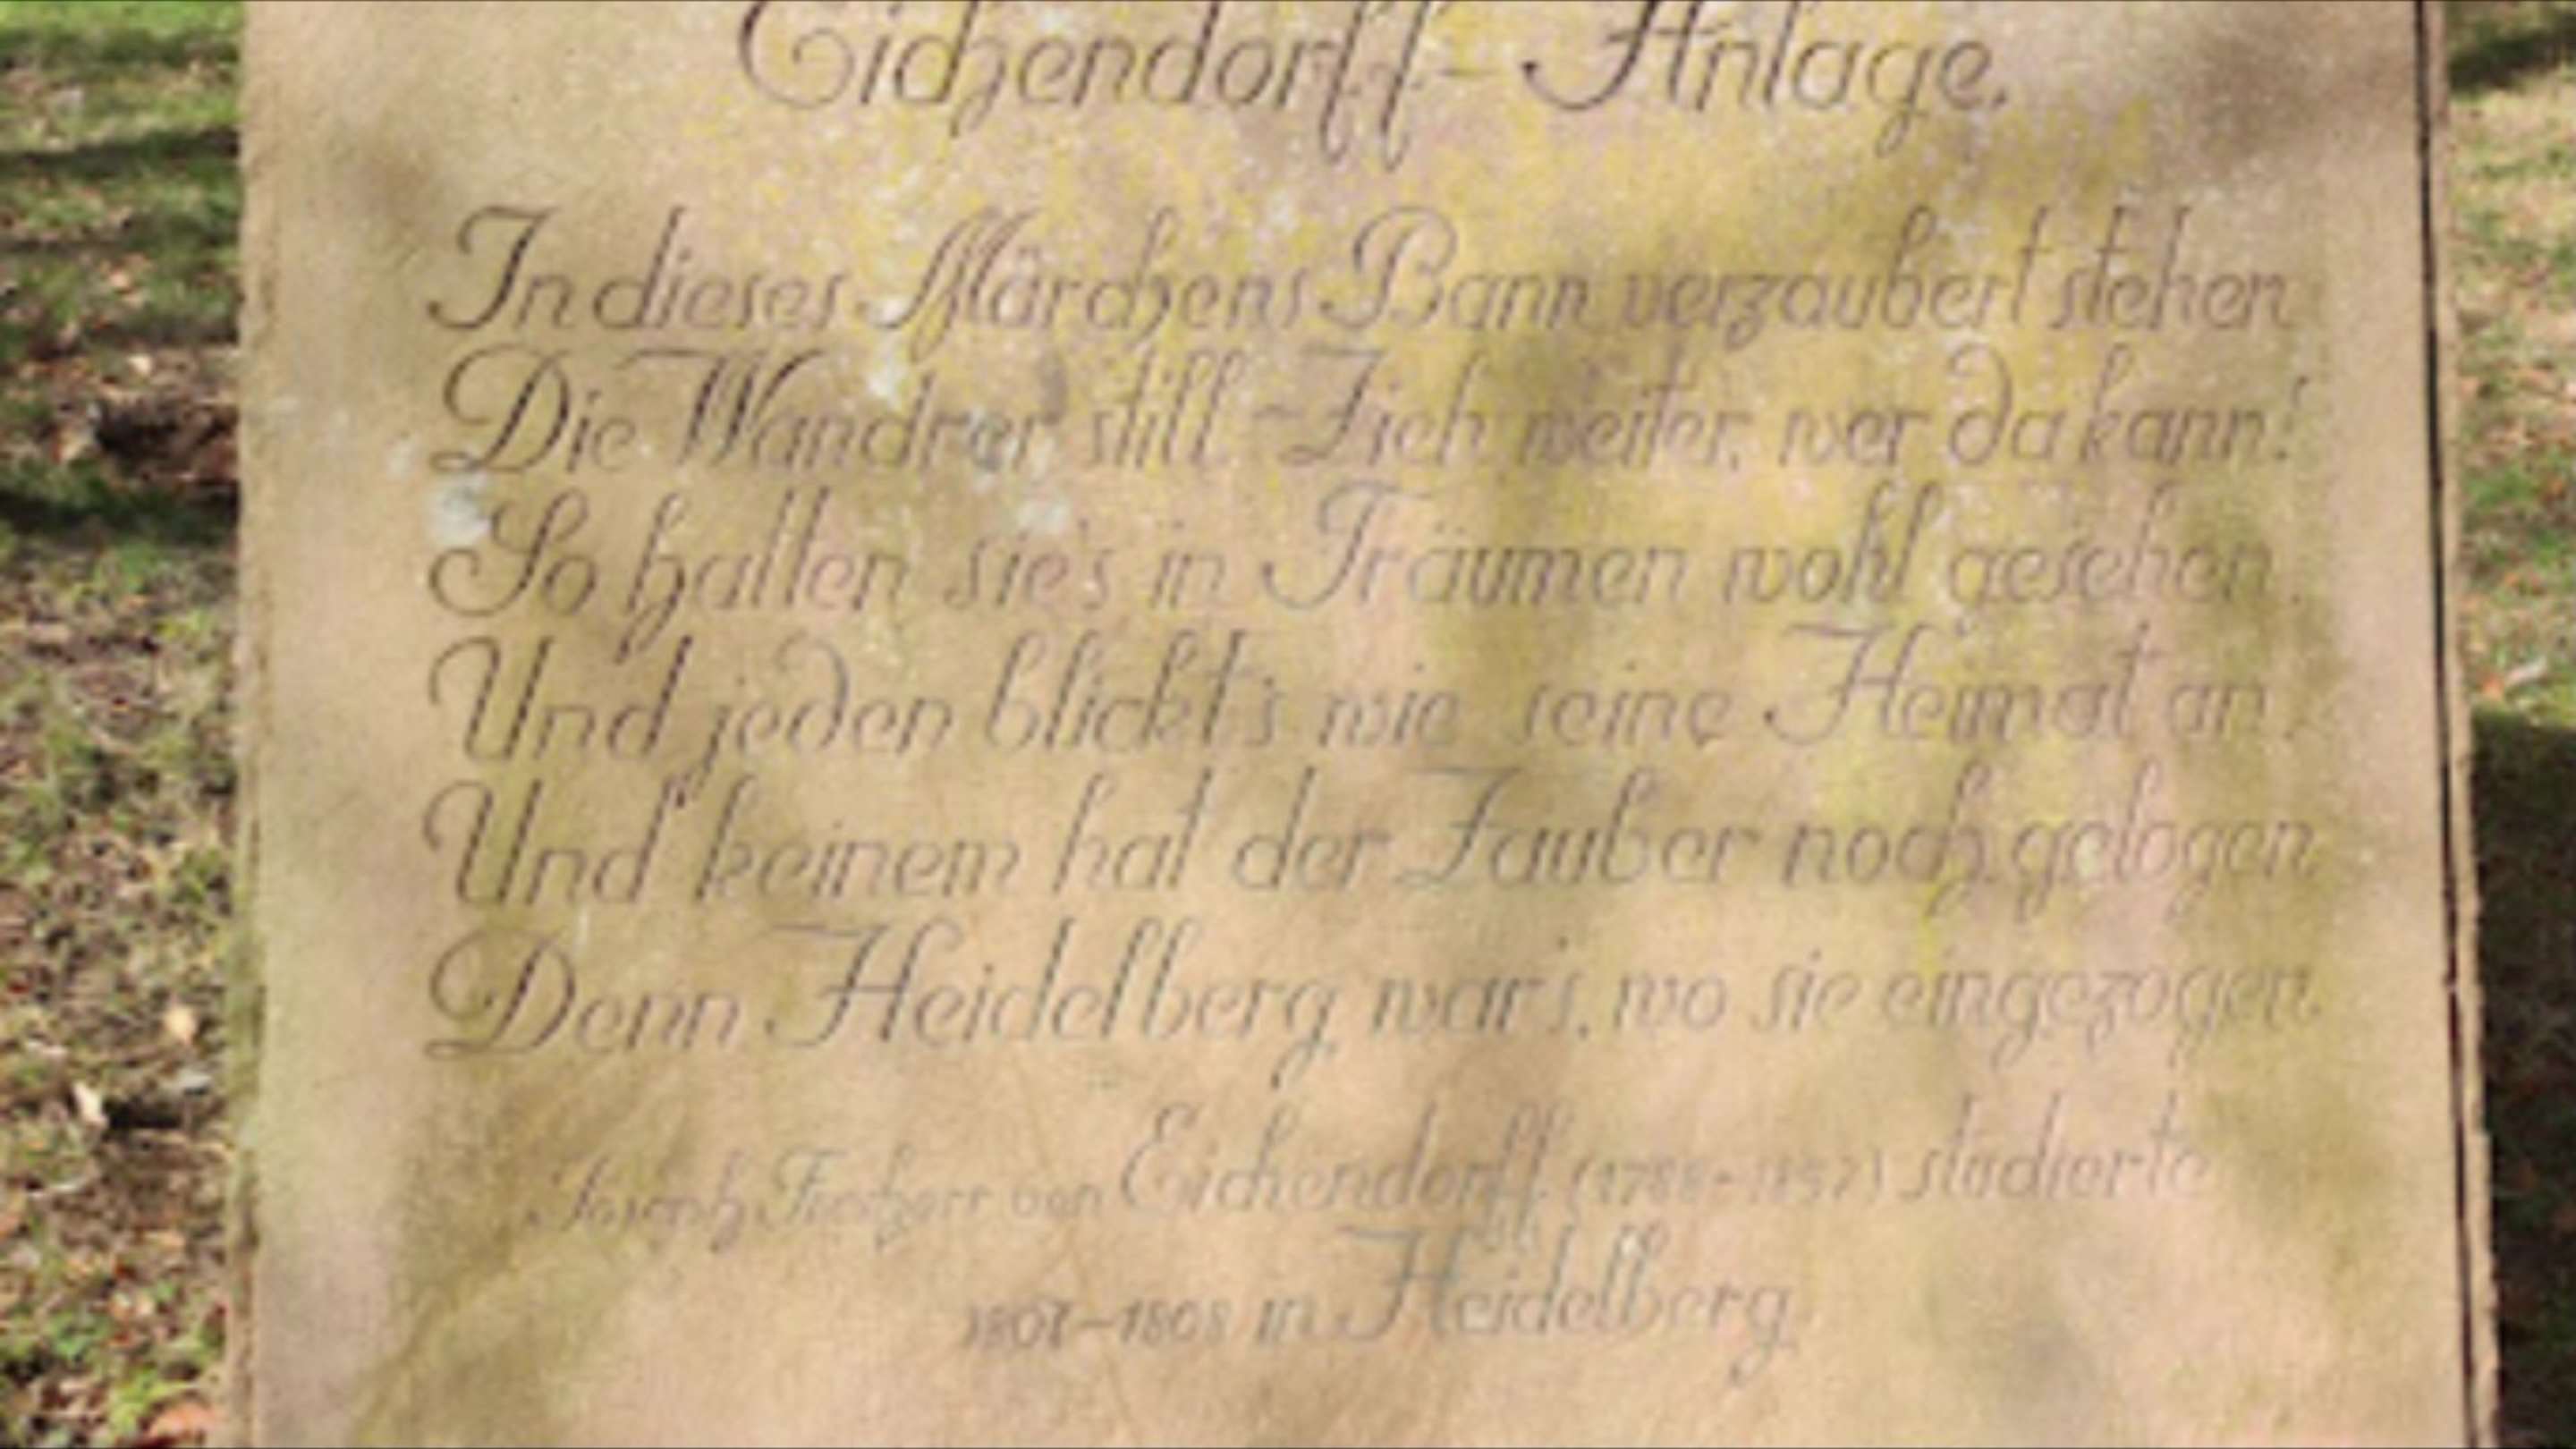 Eichendorff-Anlage.
In dieses Märchens Bann verzaubert stehen
Die Wandrer still - Zieh weiter, wer da kann!
So hatten sie's in Träumen wohl gesehen,
Und jeden blickt's wie seine Heimat an,
Und keinem hat der Zauber noch gelogen
Denn Heidelberg war's, wo sie eingezogen
Joseph Freiherr von Eichendorff (1788-1857) studierte
1807-1808 in Heidelberg